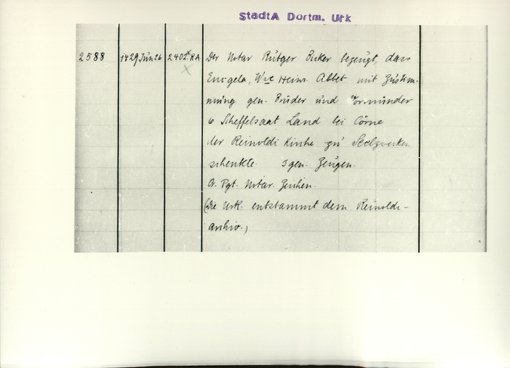 StadtA Dortm. Urk
2588 1429 Jun 26 2402 RA Der Notar Rütger Inker bezeugt, dass
Engela, Wwe Heinr. Abbet mit Zustim-
mung gen. Brüder und Vormünder
6 Scheffelsaat Land bei Cörne
der Reinoldi Kirche zu
schenkte 3 gen. Zeugen.
Or. Pgt. Notar. Zeichen.
(Die Urk. entstammt dem Reinoldi-
archiv.)